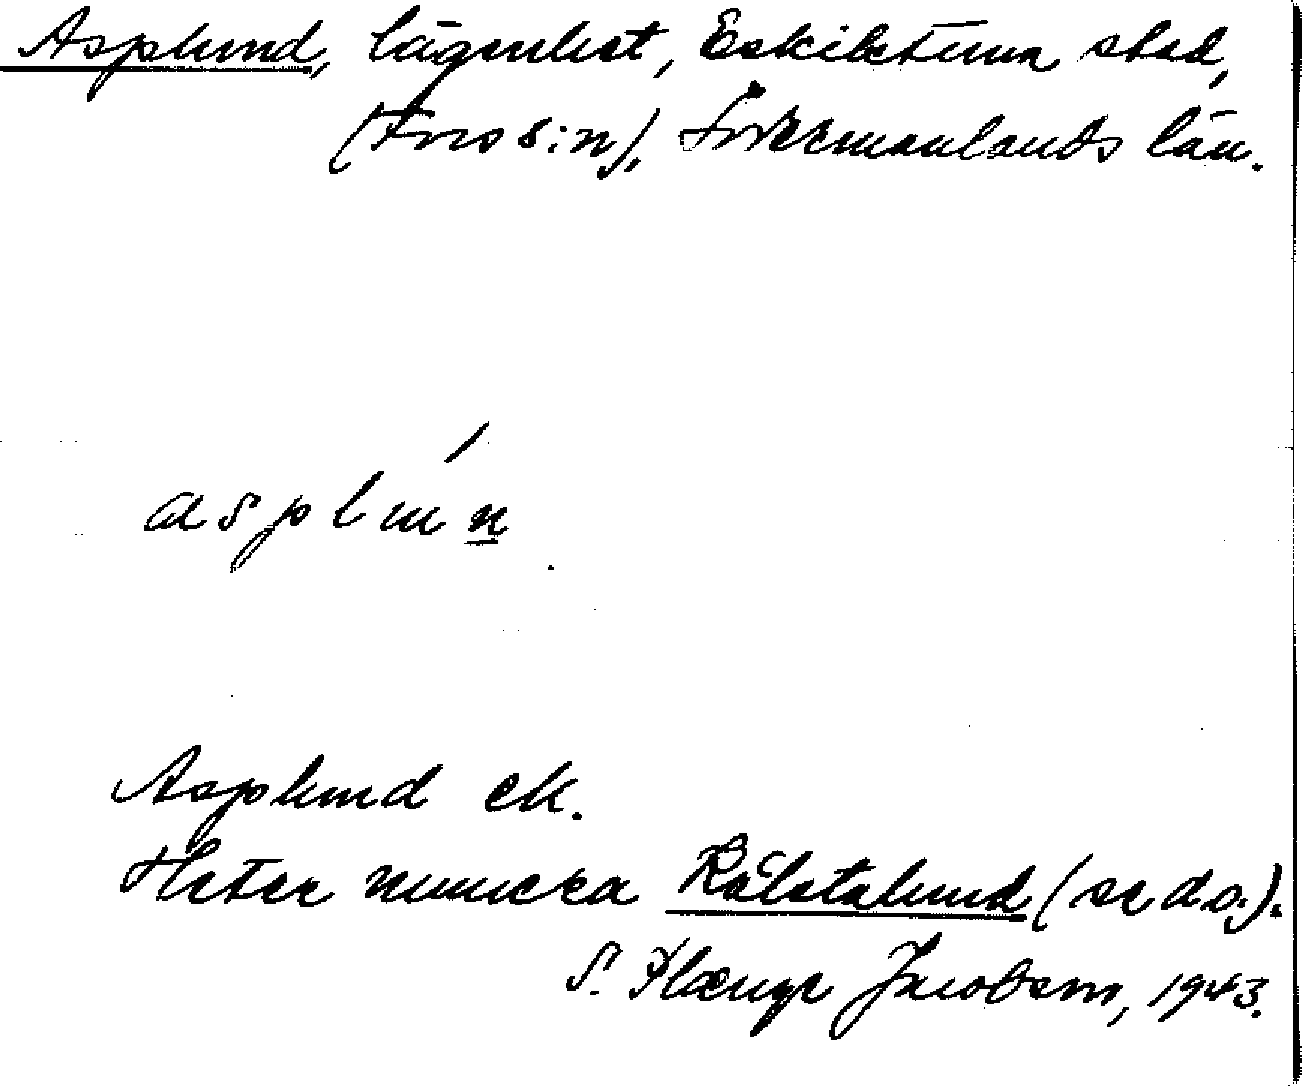 Asplund, lägenhet, Eskilstuna stad,
(Fors s:n), Södermanlands län.
asplun
Asplund ek.
Heter numera Rålstalund (se d.o.).
S. Flængr Jacobsen, 1943.